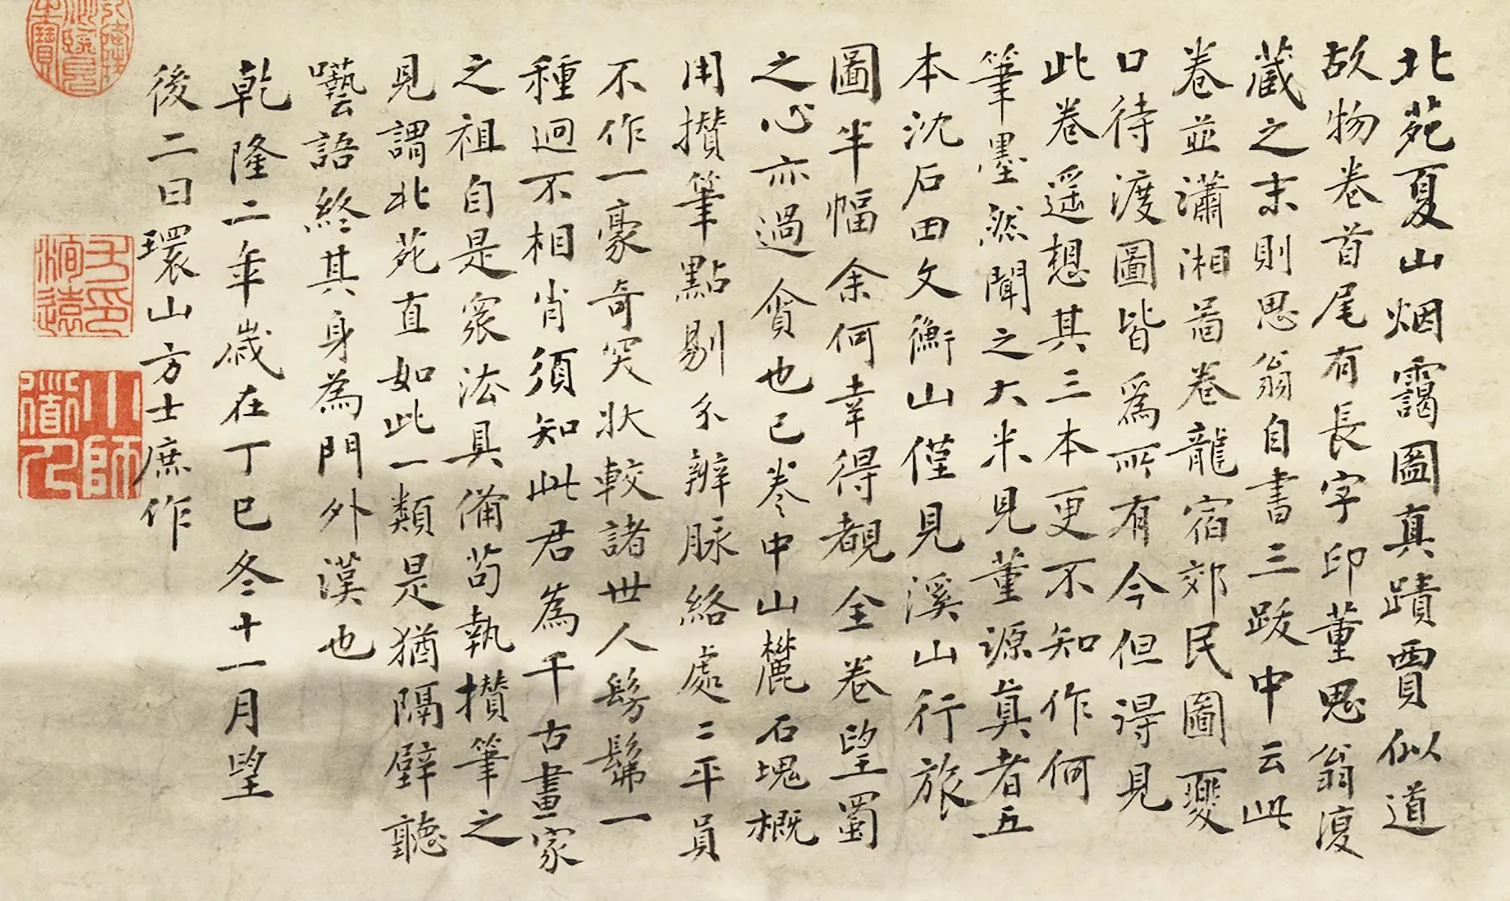 北苑夏山烟靄圖真蹟賈似道
故物卷首尾有長字印董思翁復
藏之末則思翁自書三跋中云此
卷並瀟湘啚卷龍宿郊民圖夔
口待渡圖皆為所有今但得見
此卷遥想其三本更不知作何
筆墨然聞之大米見董源真者五
本沈石田文衡山僅見溪山行旅
圖半幅余何幸得覩全卷望蜀
之心亦過貪也已卷中山麓石塊概
用攢筆點剔分辨脉絡處二平員
不作一豪奇突狀較諸世人髣髴一
種迥不相肖須知此君為千古畫家
之祖自是眾法具備苟執攢筆之
見謂北苑直如此一類是猶隔壁聽
囈語終其身為門外漢也
乾隆二年歲在丁巳冬十一月望
後二日環山方士庶作
小師
道人